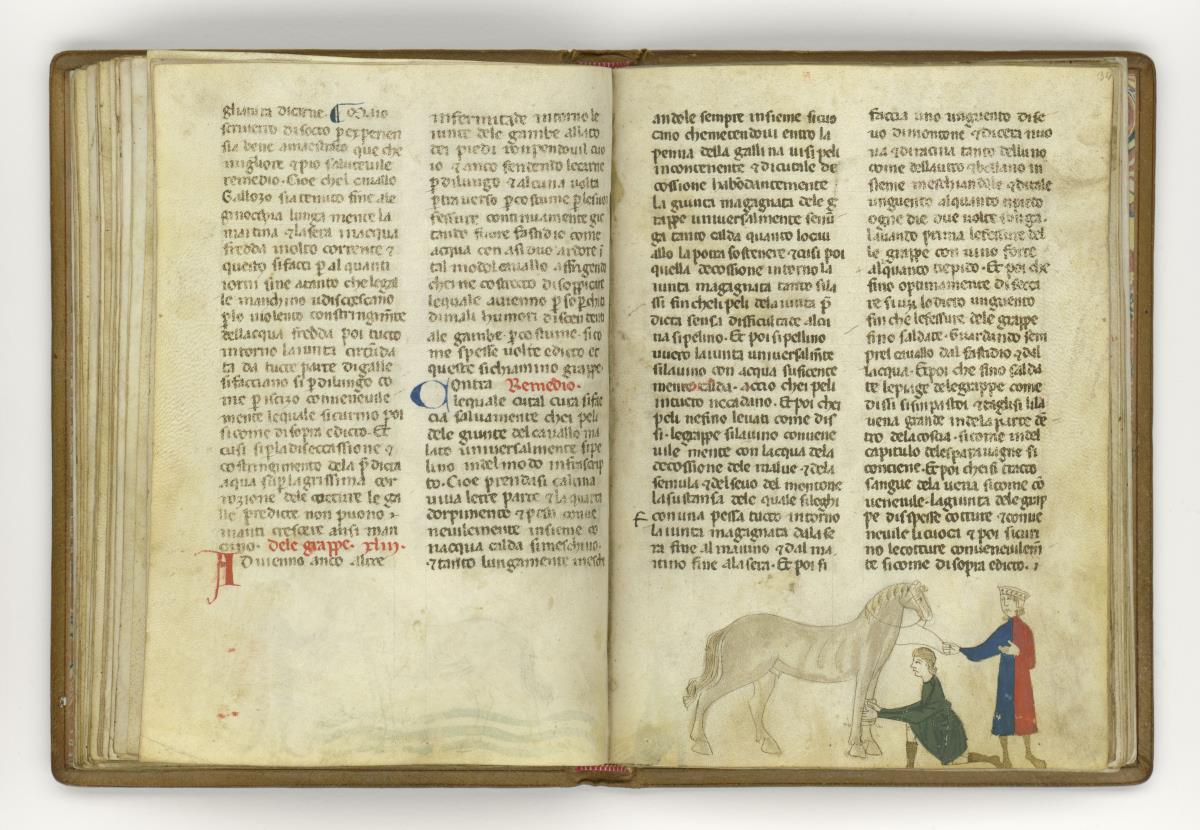 ghiatura dicarne.
scriverro disocto
sia bene amaestrato que che
migliore & pio salutevile
remedio. Cioe chel cavallo
Gallozo sia tenuto fine ale
ginocchia lunga mente la
matina & lasera inacqua
fredda molto corrente &
questo si facci p al quanti
iorni fine atanto che le gal
le manchino
plo violento constringim̄te
dellacqua fredda poi tucto
intorno la iunta
ta da tucte parte di galle
si facciano si p dilungo co
me p
mente lequale sicurino poi
si come disopra edicto. Et
cusi si pla diseccassione &
costringimento dela p̄dicta
aqua si p
rozione dele cocture le ga
lle predicte non puono
inanti crescere ansi man
cano. dele grappe. xliii.
Advienno anco altre
infermitade intorno le
iunte dele gambe allato
dei piedi rompendo
io & anco fendendo lecarne
p dilungo & alcuna volta
p traverso p costume p
fessure continuamente gic
tando fuore fastidio come
acqua con ardore i
tal modo el cavallo affrigendo
che ne costrecto disoppicare
lequale avienno p
di mali humori discendenti
ale gambe p costume. si co
me spesse volte edicto et
queste si chiamino grappe.
Contra Remedio.
lequale cutal cura si fac
cia salvamente chei peli
dele giunte del cavallo ma
lato universalmente si pe
lino indel modo infrascrip
to. Cioe prendasi calcina
viva le tre parte & la quarta
dorpimento & pesti conve
nevilemente insieme co
nacqua calda si meschino.
& tanto lungamente mesch
andole sempre insieme
cino che metendovi entro la
penna della gallina
incontenente & di cutale de
cossione habondantemente
la giunta magagnata dele g
rappe universalmente
ga tanto calda quanto lo cav
allo la potra sostenere & cusi poi
quella decossione intorno la
iunta magagnata tanto si la
ssi fin cheli peli dela iunta p̄
dicta sensa difficultade alcu
na si pelino. Et poi si pellino
universalm̄te
si lavino con acqua suficente
mente calda. accio chei peli
intucto ne cadano. Et poi chei
peli ne fino levati come dis
si. le grappe si lavino convene
vile mente con lacqua dela
decossione dele malve & dela
semula & del sevo del montone
la sustansa dele quale si leghi
con una pessa tucto intorno
la iunta magagnata dala se
ra fine al matino & dal ma
itino fine ala sera. Et poi si
faccia uno unguento di se
vo di montone &
va & di racina tanto delluno
come dellautro & bollano in
sieme meschiandole & di tale
unguento alquanto
ogne die due volte
lavando prima le fessure del
le grappe con vino forte
alquanto tiepido. Et poi che
fino optimamente di secca
re lo dicto unguento
fin che le fessure dele grappe
fino saldate. Guardando sem
prel cavallo dal fastidio & dal
lacqua. Et poi che fino salda
te le piage dele grappe come
dissi
vena grande indela parte dē
tro dela coscia. si come indel
capitulo dele sparavagne si
conciene. Et poi che si tracto
sangue dela vena si come co
venevile. la giunta dele grap
pe di spesse cotture & conve
nevile li cuoci & poi si curi
no le cotture convenevilem̄
te si come di sopra edicto.